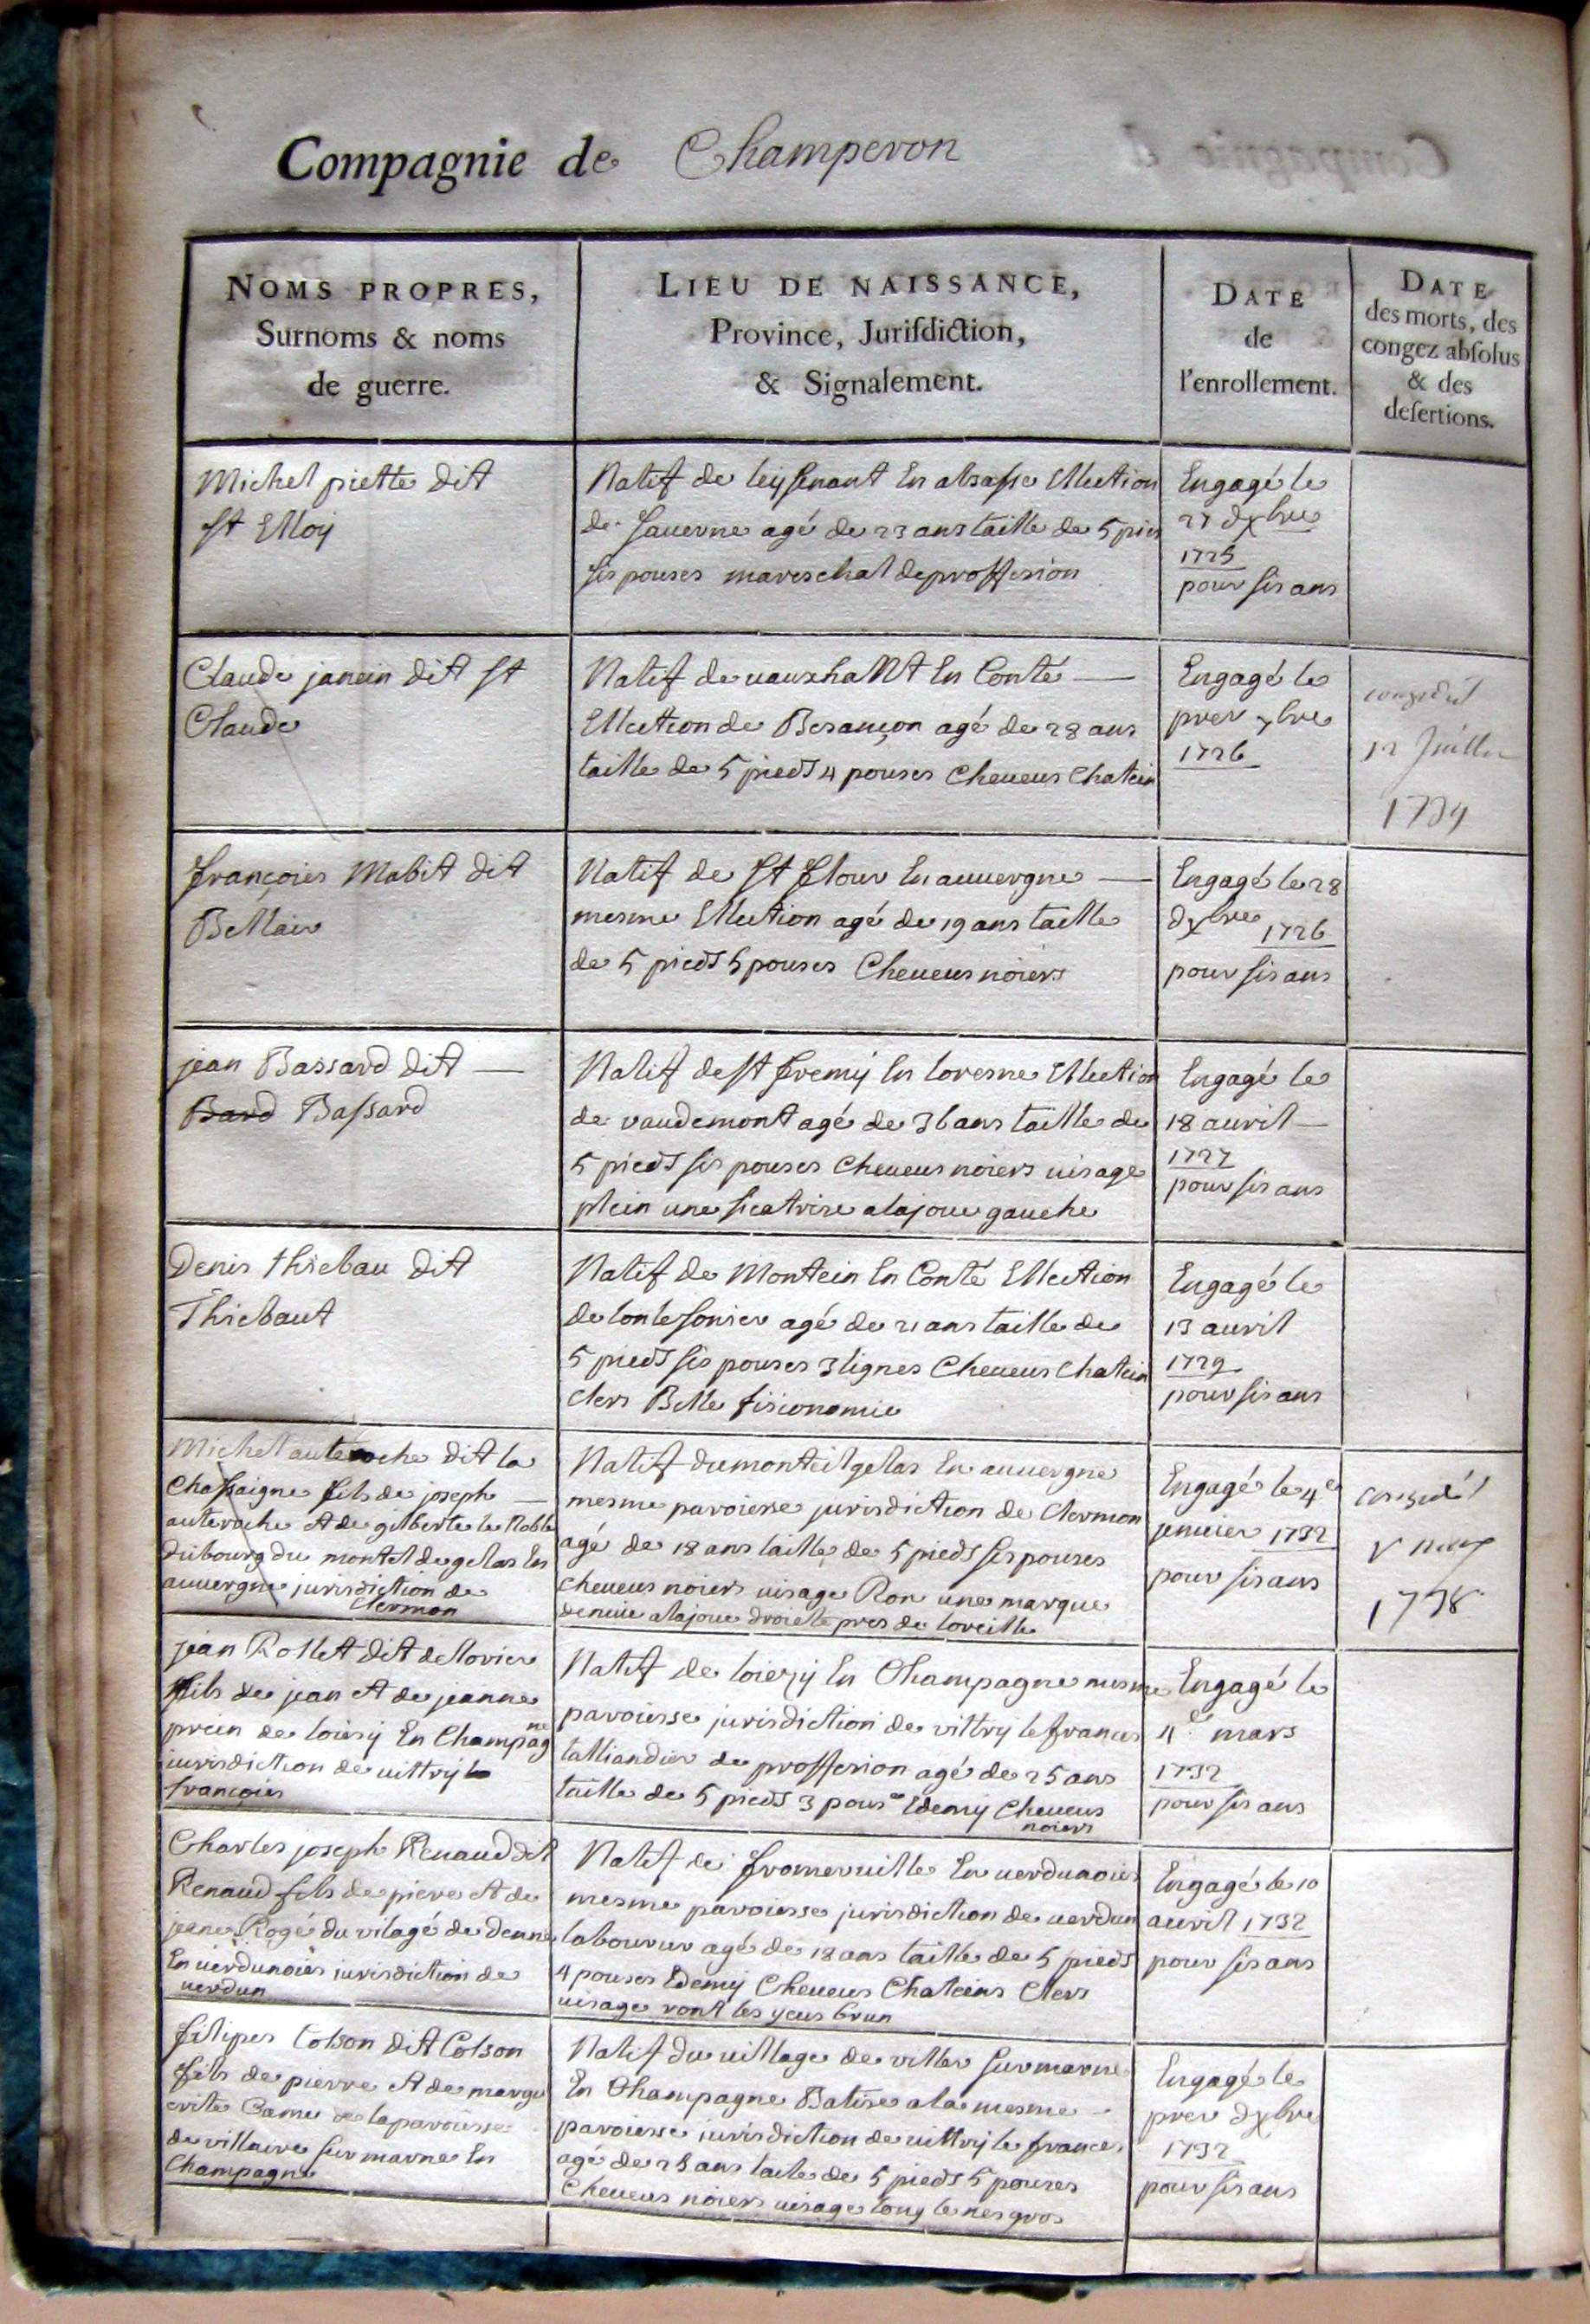 Compagnie de Champeron
NOMS PROPRES,
Surnoms & noms
de guerre.
LIEU DE NAISSANCE,
Province, Jurisdiction,
& Signalement.
DATE
de
l'enrollement.
DATE
des morts, des
congez absolus
& des
desertions.
Michel piette dit
st Elloy
Natif de leysenant En alsasse Ellection
de Sauerne agé de 23 ans taille de 5 pies
sis pouses mareschal de proffesion
Engagé le
27 dxbre
1725
pour sis ans
Claude janein dit st
Claude
Natif de vauxhallt En Conté
Ellection de Besançon agé de 28 ans
taille de 5 pieds 4 pouses Cheueus Chatein
Engagé le
prer xbre
1726
congedié
12 Juillet
1734
françois Mabit dit
Bellair
Natif de st flour En auuergne
mesme Ellection agé de 19 ans taille
de 5 pieds 5 pouses Cheueus noiers
Engagé le 28
dxbre 1726
pour sis ans
jean Bassard dit
Bard Bassard
Natif de st fremy En loresne Ellection
de vaudemont agé de 36 ans taille de
5 pieds sis pouses Cheueus noiers uisage
plein une sicatrise alajoue gauche
Engagé le
18 auril
1727
pour sis ans
Denis thiebau dit
Thiebaut
Natif de Montein En Conté Ellection
de lonlesonier agé de 21 ans taille de
5 pieds sis pouses 3 lignes Cheueus Chatein
Clers Belle fisionomie
Engagé le
13 auril
1729
pour sis ans
Michel auteroche dit la
Chassaigne fils de joseph
auteroche et de gilberte le Noble
du bourg du montel de gelas En
auuergne jurisdiction de
Clermon
Natif du monteil gelas En auuergne
mesme paroisse jurisdiction de Clermon
agé de 18 ans taille de 5 pieds sis pouses
cheueus noiers uisage Ron une marque
alajoue droiete pres de loreille
Engagé le 4e
jenuier 1732
pour sis ans
congedié
1738
jean Rollet dit dellorier
fils de jean et de jeanne
prein de loiesy En Champagne
jurisdiction de uittry le
françois
Natif de loiesy En Champagne mesme
paroisse jurisdiction de vittry le francois
talliandier de proffesion agé de 25 ans
taille de 5 pieds 3 pouse Edemy Cheueus
noiers
Engagé le
4e mars
1732
pour sis ans
Charles joseph Renaud dit
Renaud fils de piere et de
jeane Rogé du vilagé de
En uerdunois jurisdiction de
uerdun
Natif de fromeruille En uerdunois
mesme paroisse jurisdiction de uerdun
laboureur agé de 18 ans taille de 5 pieds
4 pouses Edemy Cheueus Chateins Clers
uisage ront les yeus brun
Engagé le 10
auril 1732
pour sis ans
filipes Colson dit Colson
fils de pierre et de margu
erite Camu de la paroisse
de villaire sur marne En
Champagne
Natif du uillage de viller sur marne
En Champagne Batise ala mesme
paroisse jurisdiction de uittry le frances
agé de 25 ans taile de 5 pieds 5 pouses
Cheueus noiers uisage long le nes gros
Engagé le
prer dxbre
1732
pour sis ans